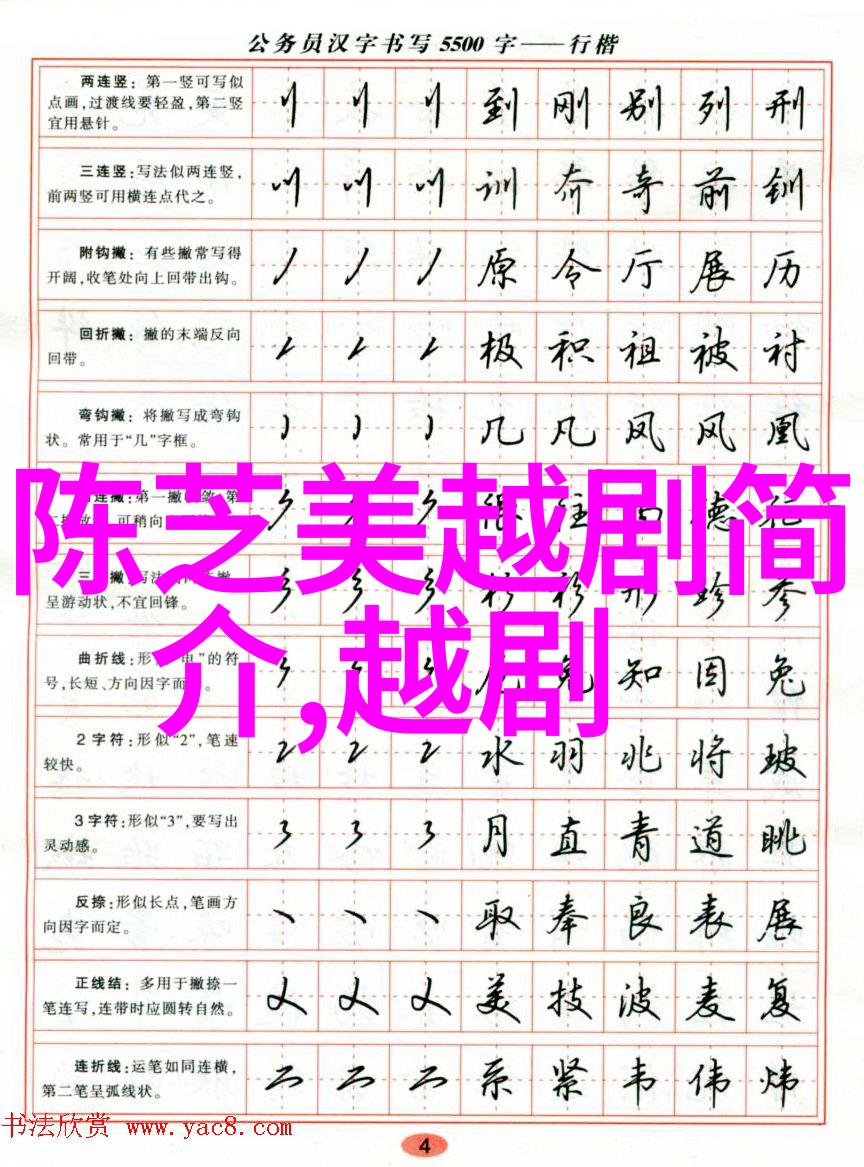 公务员汉字书写5500字——行楷
两连竖：第一竖可写似
点画,过渡线要轻盈,第二竖
宜用悬针。
到 刚 别 列 刑
三连竖:写法似两连竖,
前两竖可用横连点代之。
训 夼 奇 前 钏
附钩撇：有些撇常写得
开阔,收笔处向上回带出钩。
原 令 厅 展 历
回折撇：撇的末端反向
回带。
极 积 祖 被 衬
弯钩撇：将撇写成弯钩
状。常用于“几”字框。
几 凡 凤 风 凰
连撇:第一撇 第
可稍向
德
陈芝美越剧简
介,越剧
三 撇:写法
呈游动状,不宜回锋。
衫 形 珍 参
曲折线:形 “电”的符
号,长短、方向因字而 。
知 因 兔
2字符:形似“2”,笔速
较快。
水 羽 兆 将 玻
3字符:形似“3”,要写出
灵动感。
月 直 青 道 眺
反捺:形似长点,笔画方
向因字而定。
取 奉 良 表 展
正线结：多用于撇捺一
笔连写,连带时应圆转自然。
美 技 波 麦 复
连折线:运笔如同连横,
第二笔呈弧线状。
系 紧 韦 伟 炜
书法欣赏 www.yac8.com
4